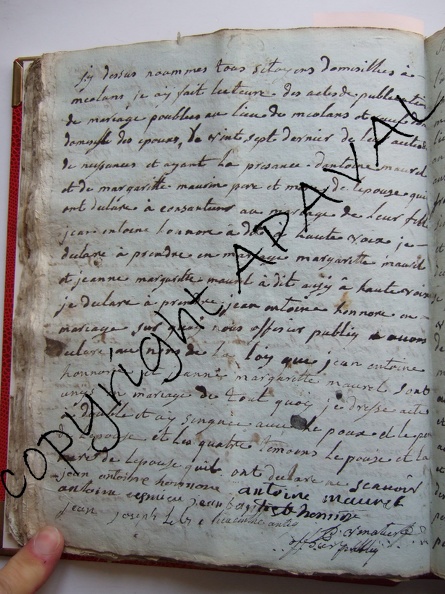 sy dessus nommes tous sitoyens domisilles à
meolans je ay fait lecteure des actes de publication
de mariage poublies au lieu de meolans et
domisile des epouex, le vint sept dernier de leur actes
de naissances et ayant la presance d'antoine maurel
et de margaritte maurin pere et mere de lepouse qui
ont declare à consanteur au mariage de leur fille
jean antoine honnore à dit à haute voix je
declare à prendre en mariage margaritte maurel
et jeanne margaritte maurel à dit aussy à haute voix
je declare à prendre jean antoine honnore en
mariage sur quoi nous officier public avons
declare au nom de la loy que jean antoine
honnore et jeanne margaritte maurel sont
unis en mariage de tout quoi je dresse acte
et ay signe avec le poux et le pere
lepouse et les quatre temoins le pouse et la
mere de lepouse qui ont declare ne scavoir
jean antoine honnore antoine maurel
antoine jean baptiste honnore
jean joseph
officier public
copyright APAVAL